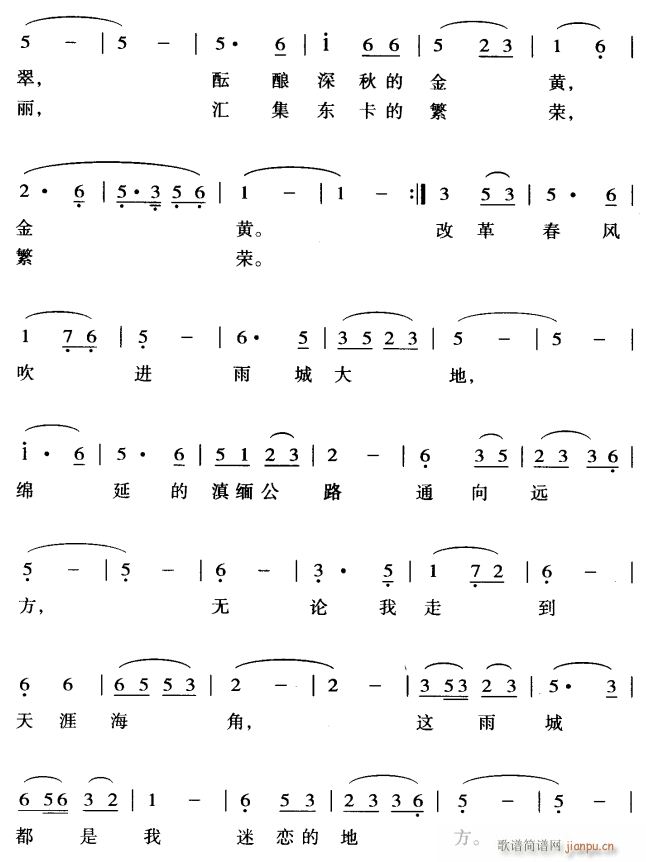 5 - | 5 - | 5· 6 | i 6 6 | 5 2 3 | 1 6 |
翠， 酝 酿 深 秋 的 金 黄，
丽， 汇 集 东 卡 的 繁 荣，
2· 6 | 5·3 5 6 | 1 - | 1 - :‖ 3 5 3 | 5· 6 |
金 黄。 改 革 春 风
繁 荣。
1 7 6 | 5 - | 6· 5 | 3 5 2 3 | 5 - | 5 - |
吹 进 雨 城 大 地，
i· 6 | 5· 6 | 5 1 2 3 | 2 - | 6 3 5 | 2 3 3 6 |
绵 延 的 滇 缅 公 路 通 向 远
5 - | 5 - | 6 - | 3· 5 | 1 7 2 | 6 - |
方， 无 论 我 走 到
6 6 | 6 5 5 3 | 2 - | 2 - | 3 5 3 2 3 | 5· 3 |
天 涯 海 角， 这 雨 城
6 5 6 3 2 | 1 - | 6 5 3 | 2 3 3 6 | 5 - | 5 - |
都 是 我 迷 恋 的 地 方。
歌谱简谱网 jianpu.cn